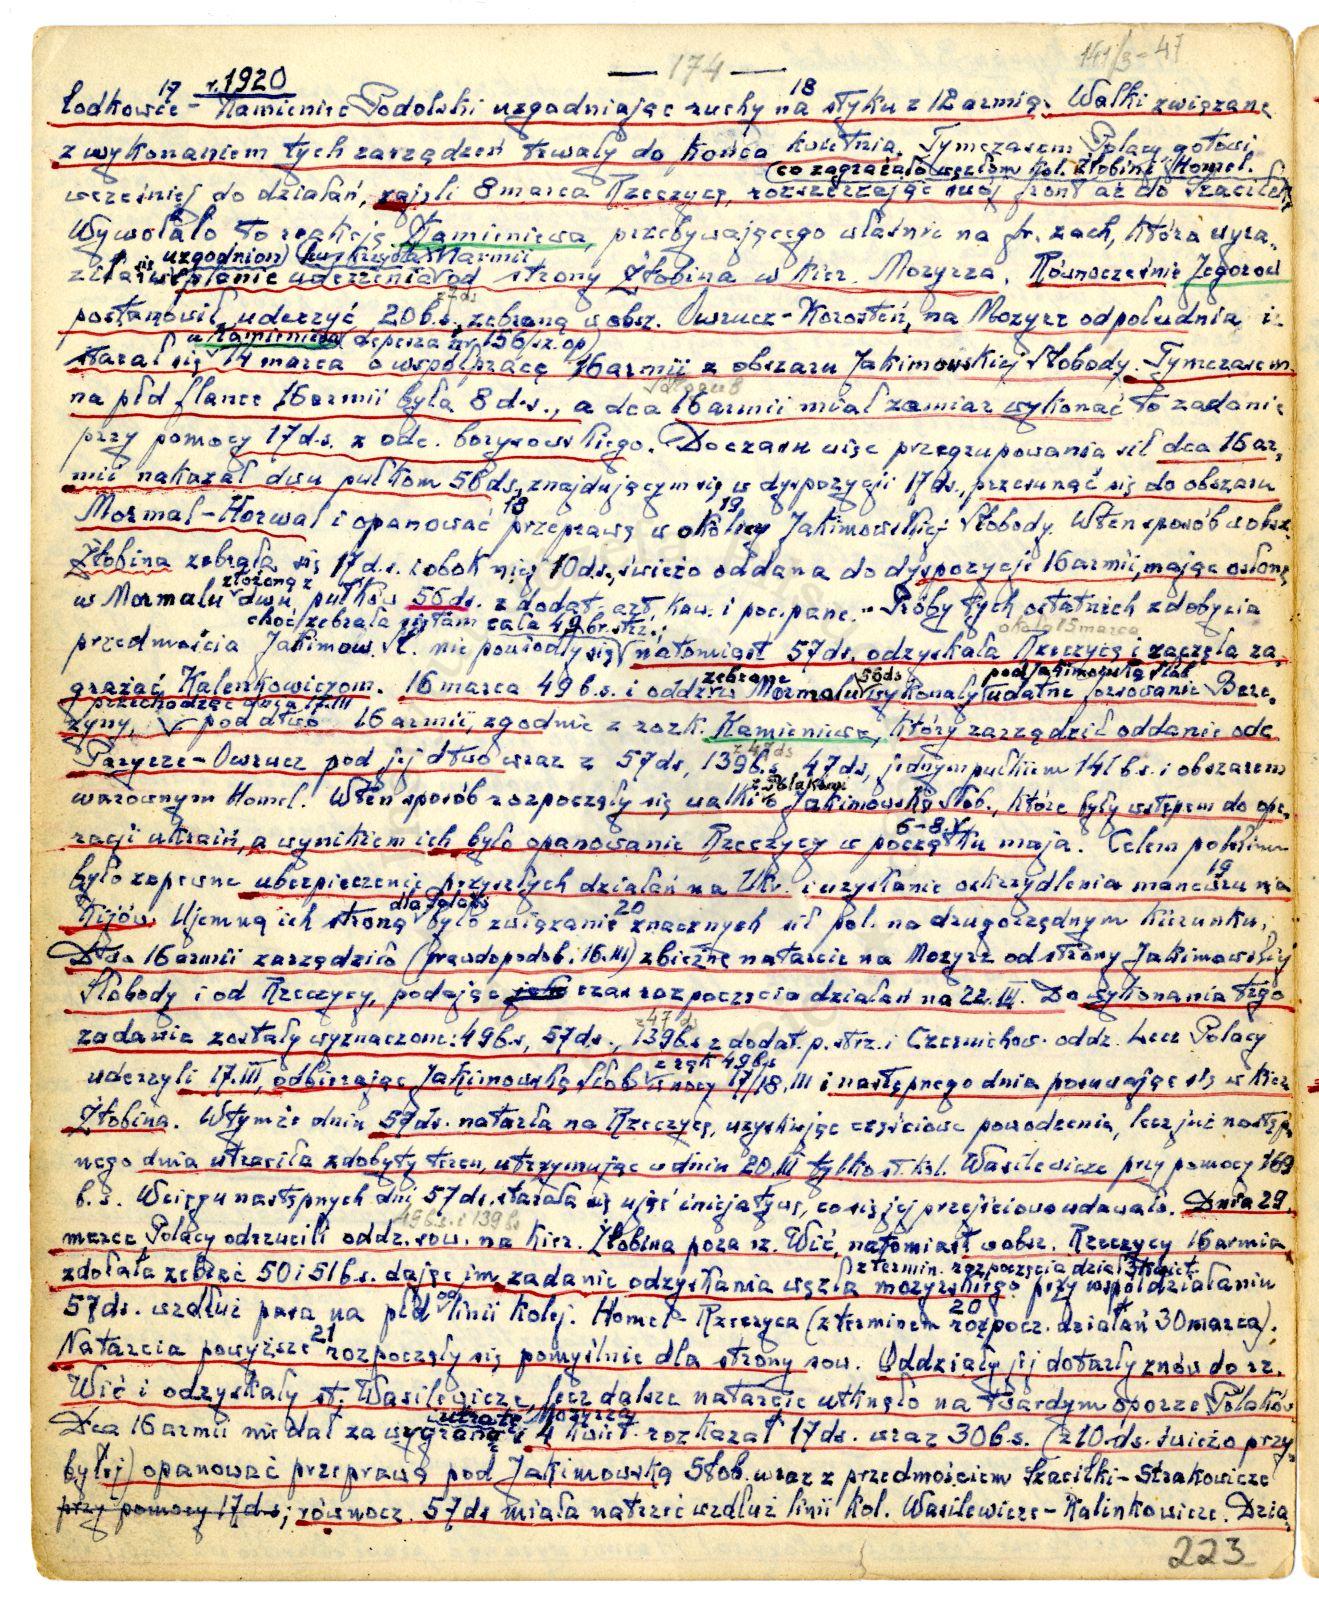 — 174 —
141/3-47
r. 1920
17 18
Łodkowce - Kamieniec Podolski uzgadniając ruchy na styku z 12 armią. Walki związane
z wykonaniem tych zarządzeń trwały do końca kwietnia. Tymczasem Polacy gotowi
co zagrażało węzłom kol. Żłobin i Homel.
wcześniej do działań, zajęli 8 marca Rzeczycę, rozszerzając swój front aż do Szaciłek
Wywołało to reakcję Kamieniewa, przebywającego właśnie na fr. zach, która wyra-
uzgodnion armii
ziła się w planie uderzenia od strony Żłobina w kier. Mozyrza. Równocześnie Jegorow
z 7 ds
postanowił uderzyć 20 b.s., zebraną w obsz. Owrucz-Korosteń, na Mozyrz od południa i
u Kamieniewa (depesza nr 156/sz. op)
starał się 14 marca o współpracę 16 armii z obszaru Jakimowskiej Słobody. Tymczasem
na płd flance 16 armii była 8 d.s., a dca 16 armii miał zamiar wykonać to zadanie
przy pomocy 17 d.s. z odc. borysowskiego. Do czasu więc przegrupowania sił dca 16 ar-
mii nakazał dwu pułkom 56 ds, znajdującym się w dyspozycji 17 ds., przesunąć się do obszaru
18 19
Mormal-Horwal i opanować przeprawę w okolicy Jakimowskiej Słobody. W ten sposób w obsz.
Żłobina zebrała się 17 d.s. i obok niej 10 ds, świeżo oddana do dyspozycji 16 armii, mając osłonę
złożoną z
w Mormalu dwu pułków 56 ds. z dodat. art. kaw. i poc. panc. - Próby tych ostatnich zdobycia
choć zebrała się tam cała 49 br. strz.; około 15 marca
przedmościa Jakimow. Sł. nie powiodły się, natomiast 57 ds. odzyskała Rzeczycę i zaczęła za-
zebrane 56 ds pod Jakimowską Słob
grażać Kalenkowiczom. 16 marca 49 b.s. i oddz. w Mormalu wykonały udatne forsowanie Bere-
przechodząc dnia 17.III
zyny, pod dtwo 16 armii, zgodnie z rozk. Kamieniewa, który zarządził oddanie odc
z 47 ds
Parycze-Owrucz pod jej dtwo wraz z 57 ds, 139 b.s, 47 ds, jednym pułkiem 141 b.s. i obszarem
z Polakami
warownym Homel. W ten sposób rozpoczęły się walki o Jakimowską Słob., które były wstępem do ope-
6-8 V
racji ukraiń, a wynikiem ich było opanowanie Rzeczycy w początku maja. Celem polskim
19
było zapewne ubezpieczenie przyszłych działań na Ukr. i uzyskanie oskrzydlenia manewru na
dla Polaków 20
Kijów. Ujemną ich stroną było związanie znacznych sił pol. na drugorzędnym kierunku.
Dtwo 16 armii zarządziło (prawdopodob. 16.III) zbieżne natarcie na Mozyrz od strony Jakimowskiej
Słobody i od Rzeczycy, podając czas rozpoczęcia działań na 22.III. Do wykonania tego
z 47 ds
zadania zostały wyznaczone: 49 b.s, 57 ds., 139 b.s z dodat. p. strz. i Czernichow. oddz. Lecz Polacy
z rąk 49 b.s
uderzyli 17.III, odbierając Jakimowską Słob w nocy 17/18.III i następnego dnia posuwając się w kier.
Żłobina. W tymże dniu 57 ds. natarła na Rzeczycę, uzyskując częściowe powodzenie, lecz już następ-
nego dnia utraciła zdobyty teren, utrzymując w dniu 20.III tylko st. kol. Wasilewicze przy pomocy 169
b.s. W ciągu następnych dni 57 ds. starała się ująć inicjatywę, co się jej przejściowo udawało. Dnia 29
49 b.s. i 139 bs
marca Polacy odrzucili oddz. sow. na kier. Żłobina poza rz. Wić, natomiast w obsz. Rzeczycy 16 armia
z termin. rozpoczęcia dział. 3 kwiet.
zdołała zebrać 50 i 51 b.s. dając im zadanie odzyskania węzła mozyrskiego przy współdziałaniu
57 ds. wzdłuż pasa na płd od linii kolej. Homel-Rzeczyca (z terminem rozpocz. działań 30 marca).
21 20
Natarcia powyższe rozpoczęły się pomyślnie dla strony sow. Oddziały jej dotarły znów do rz.
Wić i odzyskały st. Wasilewicze, lecz dalsze natarcie utknęło na twardym oporze Polaków
utratę Mozyrza
Dca 16 armii nie dał za wygraną i 4 kwiet. rozkazał 17 ds. wraz 30 b.s. (z 10. ds. świeżo przy-
byłej) opanować przeprawę pod Jakimowską Słob. wraz z przedmościem Szaciłki-Strakowicze
przy pomocy 17 ds; równocz. 57 ds miała natrzeć wzdłuż linii kol. Wasilewicze-Kalinkowicze. Dzia-
223